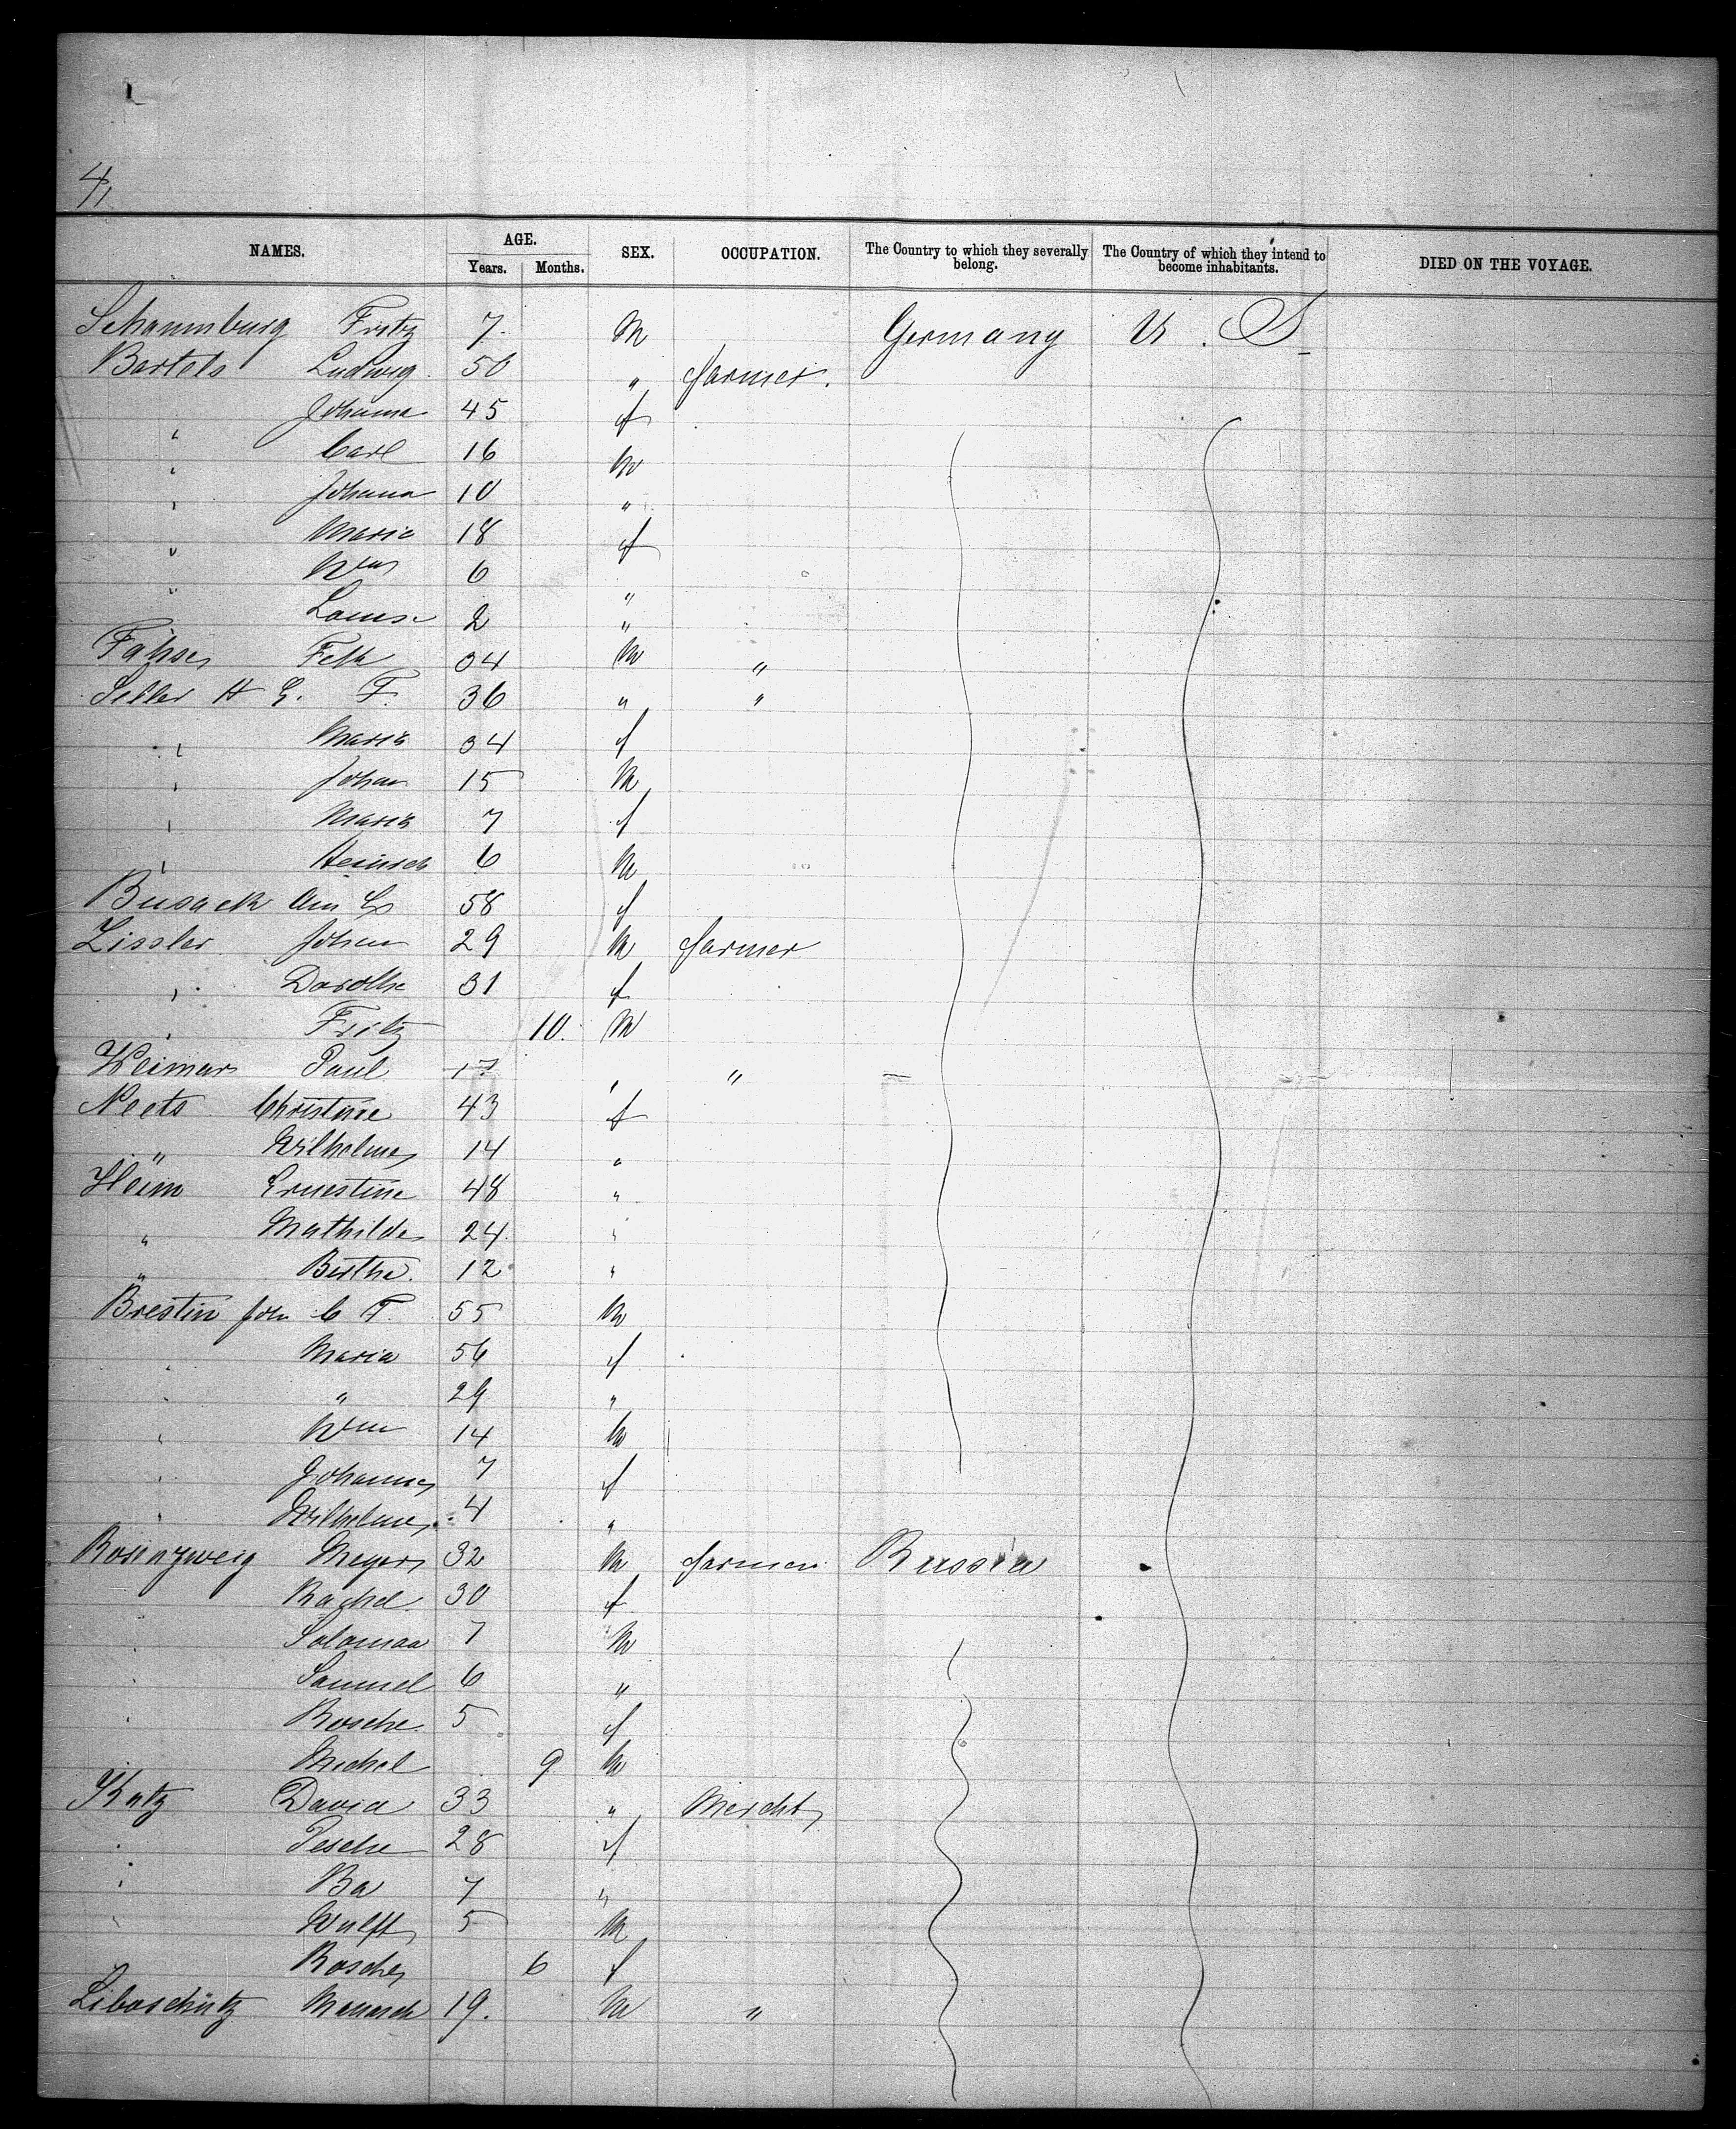 4,
NAMES. AGE. SEX. OCCUPATION. The Country to which they severally belong. The Country of which they intend to become inhabitants. DIED ON THE VOYAGE.
Years. Months.
Schaumburg Fritz 7. M Germany U. S
Bartels Ludwig 50 " farmer.
" Johanna 45 f
" Carl 16 M
" Johana 10 "
" Maria 18 f
" Wm 6 "
" Louise 2 "
Fahse 34 M "
Seller H G. F. 36 " "
" Maria 34 f
" Johan 15 M
" Maria 7 f
" Heinrich 6 M
Busack 58 f
Zissler Johan 29 M farmer
" Dorothe 31 f
" Fritz 10. M
Weimar Paul 17 " "
Neets Christine 43 f
" Wilhelme 14 "
Heim Ernestine 48 "
" Mathilde 24. "
" Berthe. 12 "
Brestin Joh C F. 55 M
" Maria 56 f
" " 29 "
" Wm 14 M
" Johanne 7 f
" Wilhelme 4 "
Rosenzweig Meyer 32 M farmer Russia
Rachel 30 f
" Soloman 7 M
" Samuel 6 "
" Rosche 5 f
Michel 9 M
Katz David 33 " Mercht
" Pesche 28 f
" Ba 7 "
" Wulff 5 M
Rosche 6 f
Liboschütz Manasch 19. M "